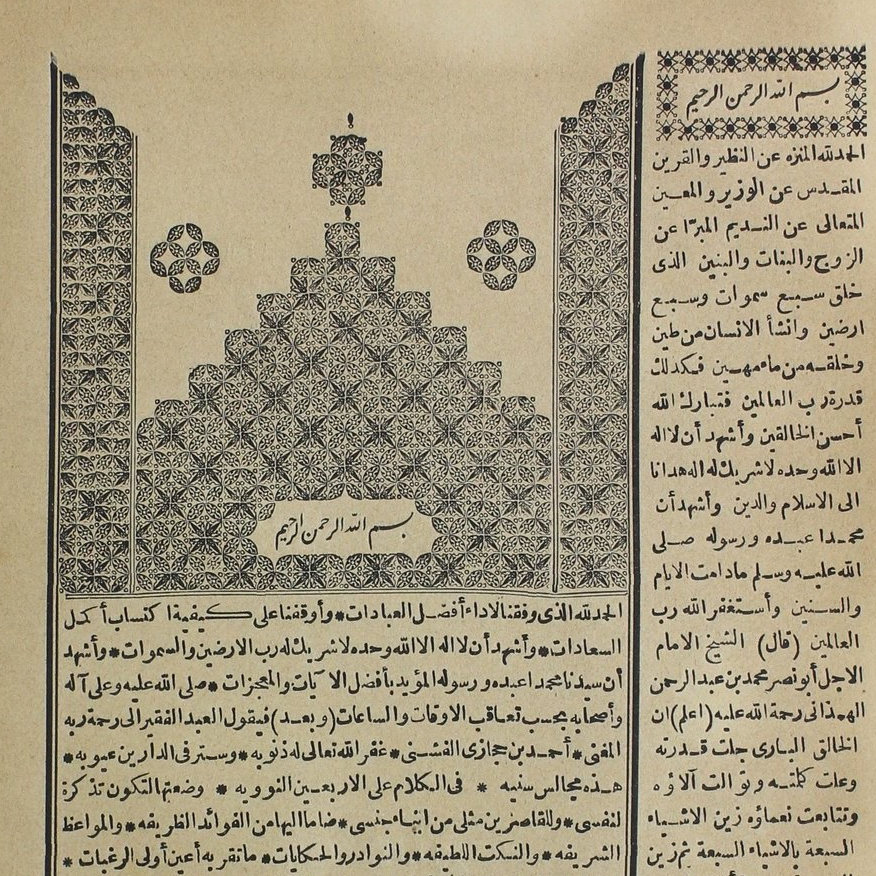 بسم الله الرحمن الرحيم
الحمدلله الذى وفقنا لاداء أفضل العبادات * وأوقفنا على كيفية اكتساب أكمل
السعادات * وأشهد أن لا اله الا الله وحده لا شريك له رب الارضين والسموات * وأشهد
أن سيدنا محمدا عبده ورسوله المؤيد بأفضل الآيات والمعجزات * صلى الله عليه وعلى آله
وأصحابه بحسب تعاقب الاوقات والساعات (وبعد) فيقول العبد الفقير الى رحمة ربه
المغنى * أحمد بن حجازى الفشنى * غفر الله تعالى له ذنوبه * وستر فى الدارين عيوبه *
هذه مجالس سنيه * فى الكلام على الاربعين النوويه * وضعتها لتكون تذكرة
لنفسى * وللقاصرين مثلى من ابناء جنسى * ضاما اليها من الفوائد الظريفه * والمواعظ
الشريفه * والنكت اللطيفه * والنوادر والحكايات * ما تقر به أعين أولى الرغبات *
بسم الله الرحمن الرحيم
الحمدلله المنزه عن النظير والقرين
المقدس عن الوزير والمعين
المتعالى عن النديم المبرّا عن
الزوج والبنات والبنين الذى
خلق سبع سموات وسبع
ارضين وانشأ الانسان من طين
وخلقه من ماء مهين فكذلك
قدرة رب العالمين فتبارك الله
أحسن الخالقين وأشهد أن لا اله
الا الله وحده لا شريك له اله هدانا
الى الاسلام والدين وأشهد أن
محمدا عبده ورسوله صلى
الله عليه وسلم مادامت الايام
والسنين وأستغفر الله رب
العالمين (قال) الشيخ الامام
الاجل أبو نصر محمد بن عبد الرحمن
الهمذانى رحمة الله عليه (اعلم) ان
الخالق البارى جلت قدرته
وعلت كلمته وتوالت آلاؤه
وتتابعت نعماؤه زين الاشياء
السبعة بالاشياء السبعة ثم زين